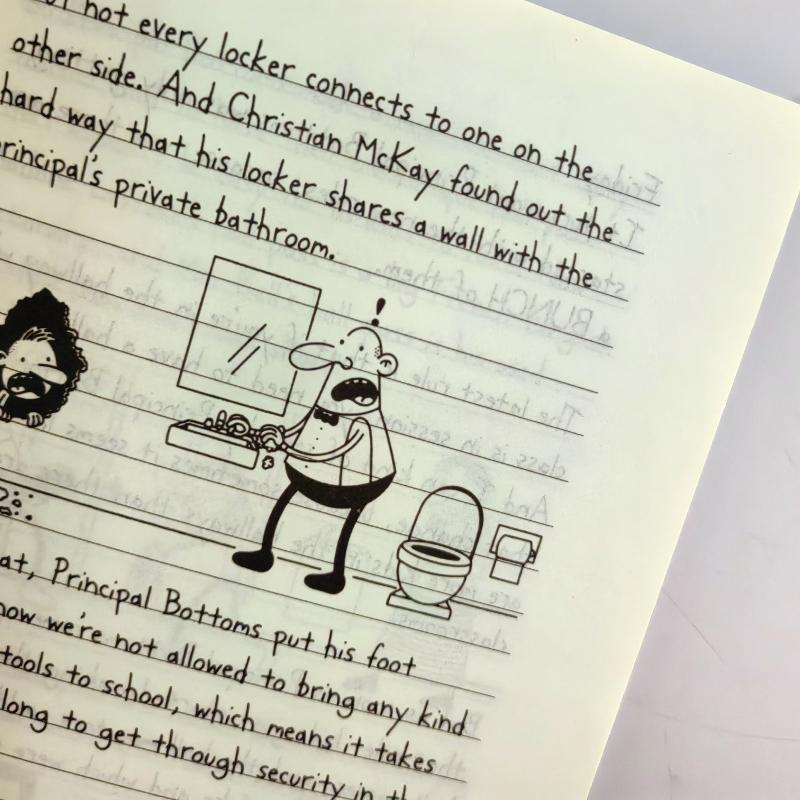 not every locker connects to one on the
other side. And Christian McKay found out the
hard way that his locker shares a wall with the
principal's private bathroom.
!
at, Principal Bottoms put his foot
now we're not allowed to bring any kind
tools to school, which means it takes
long to get through security in th